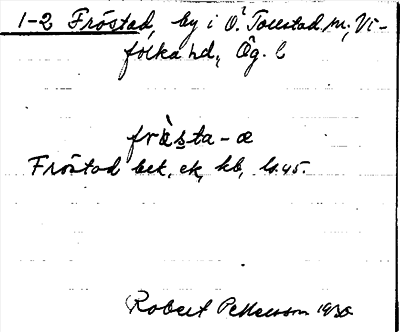 1-2 Fröstad, by i Ö. Tollstad sn, Vi-
folka hd, Ög. l
fràsta - æ
Fröstad bet. ek, kb, ls. 45.
Robert Pettersson 1930